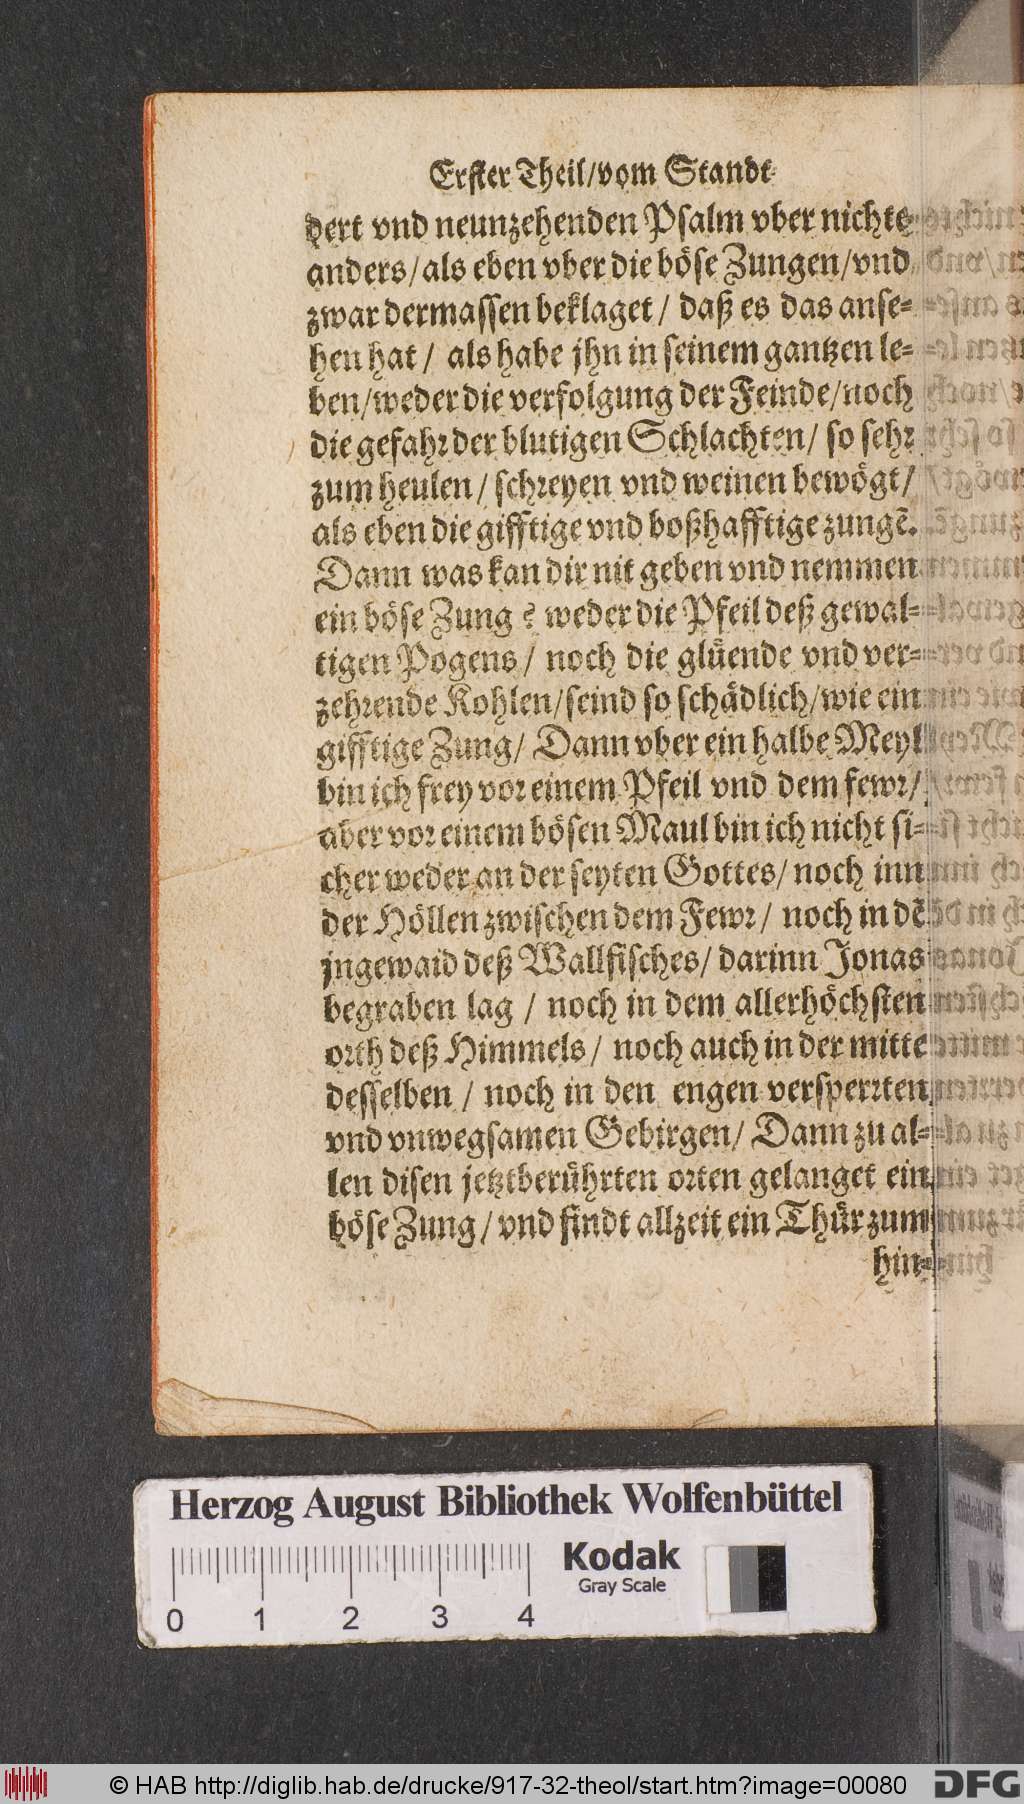 Erster Theil/vom Standt
dert vnd neunzehenden Psalm vber nichts
anders/als eben vber die böse Zungen/vnd
zwar dermassen beklaget/ daß es das anse-
hen hat/ als habe jhn in seinem gantzen le-
ben/weder die verfolgung der Feinde/noch
die gefahr der blutigen Schlachten/ so sehr
zum heulen/ schreyen vnd weinen bewögt/
als eben die gifftige vnd boßhafftige zungẽ.
Dann was kan dir nit geben vnd nemmen
ein böse Zung? weder die Pfeil deß gewal-
tigen Pogens/ noch die glüende vnd ver-
zehrende Kohlen/seind so schädlich/wie ein
gifftige Zung/ Dann vber ein halbe Meyl
bin ich frey vor einem Pfeil vnd dem fewr/
aber vor einem bösen Maul bin ich nicht si-
cher weder an der seyten Gottes/ noch inn
der Höllen zwischen dem Fewr/ noch in dẽ
jngewaid deß Wallfisches/ darinn Jonas
begraben lag / noch in dem allerhöchsten
orth deß Himmels/ noch auch in der mitte
desselben / noch in den engen versperrten
vnd vnwegsamen Gebirgen/ Dann zu al-
len disen jetztberührten orten gelanget ein
böse Zung/ vnd findt allzeit ein Thür zum
hin-
Herzog August Bibliothek Wolfenbüttel
Kodak
Gray Scale
0 1 2 3 4
© HAB http://diglib.hab.de/drucke/917-32-theol/start.htm?image=00080
DFG